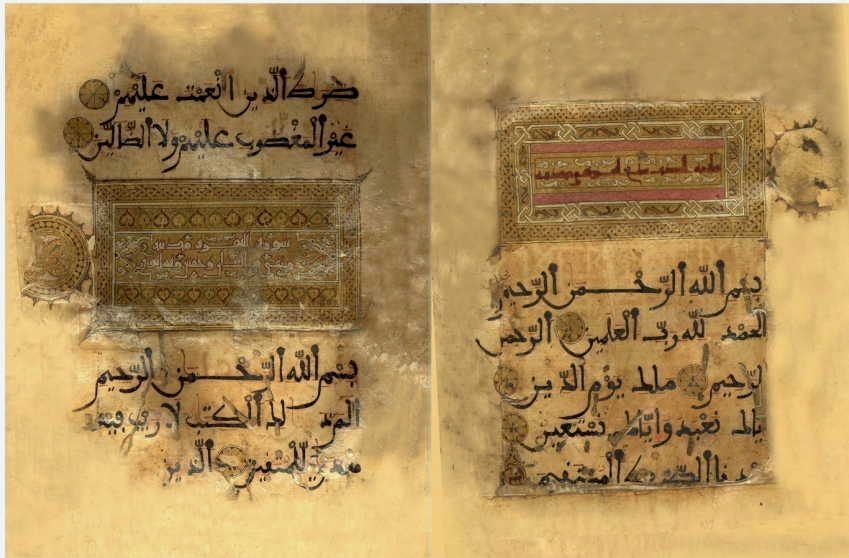 بسم الله الرحمن الرحيم
الحمد لله رب العلمين الرحمن
الرحيم ملك يوم الدين
إياك نعبد وإياك نستعين
اهدنا الصرط المستقيم
صرط الذين أنعمت عليهم
غير المغضوب عليهم ولا الضالين
سورة البقرة مدنية
بسم الله الرحمن الرحيم
الم ذلك الكتب لا ريب فيه
هدى للمتقين الذين